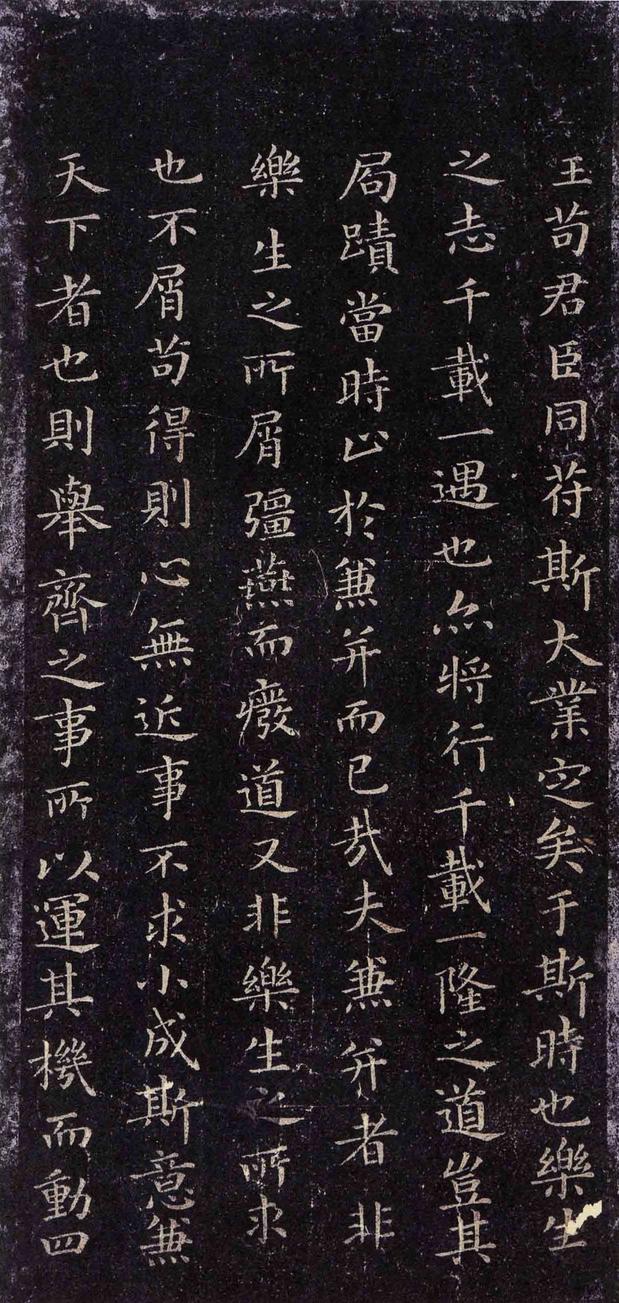 王苟君臣同苻斯大業定矣于斯時也樂生
之志千載一遇也亦將行千載一隆之道豈其
局蹟當時止於兼并而已哉夫兼并者非
樂生之所屑彊燕而癈道又非樂生之所求
也不屑苟得則心無近事不求小成斯意兼
天下者也則舉齊之事所以運其機而動四